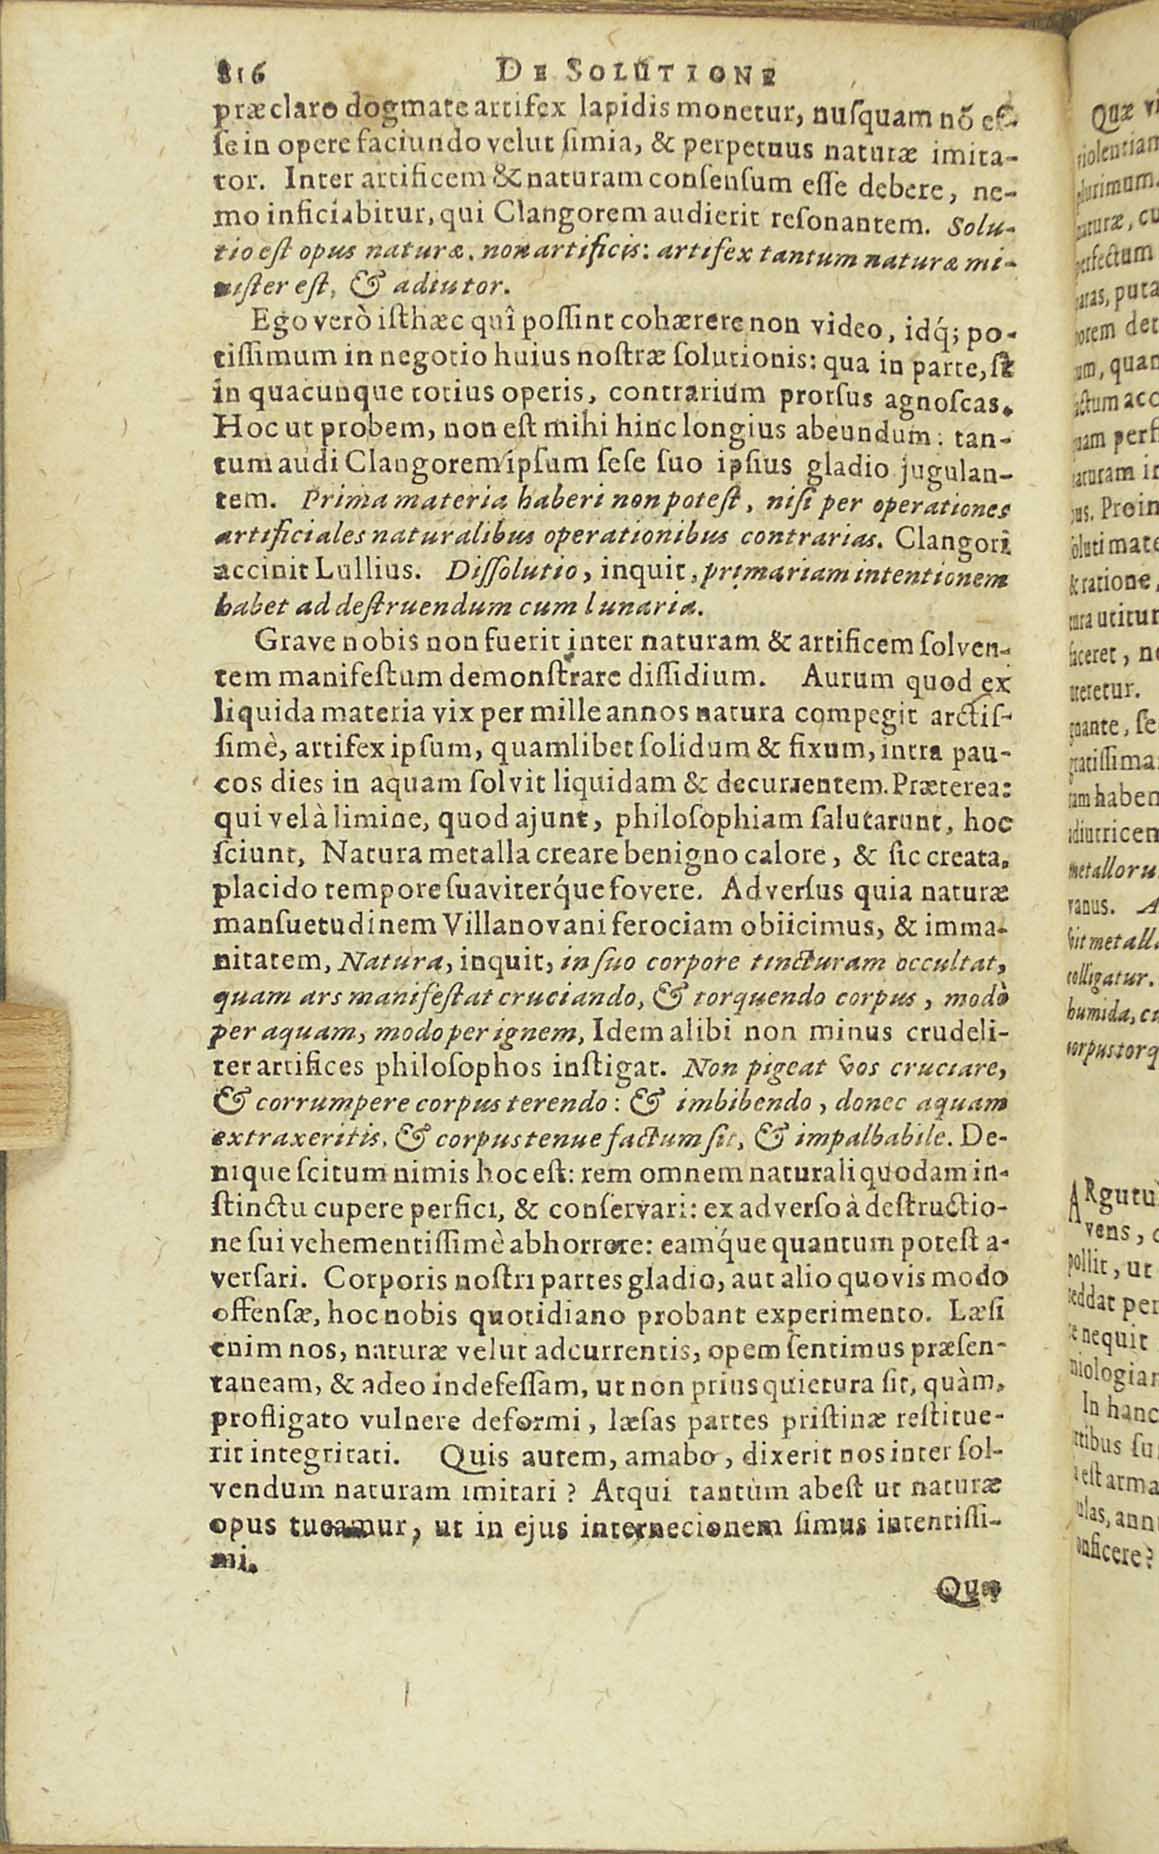 816 DE SOLUTIONE
præclaro dogmate artifex lapidis monetur, nuſquam nō eſ-
ſe in opere faciundo velut ſimia, & perpetuus naturæ imita-
tor. Inter artificem & naturam conſenſum eſſe debere, ne-
mo inficiabitur, qui Clangorem audierit reſonantem. Solu-
tio eſt opus naturæ, non artificis: artifex tantum naturæ mi-
niſter eſt, & adiutor.
Ego verò iſthæc quî poſſint cohærere non video, idq́; po-
tiſſimum in negotio huius noſtræ ſolutionis: qua in parte, ſi
in quacunque totius operis, contrarium prorſus agnoſcas.
Hoc ut probem, non eſt mihi hinc longius abeundum: tan-
tum audi Clangorem ipſum ſeſe ſuo ipſius gladio jugulan-
tem. Prima materia haberi non poteſt, niſi per operationes
artificiales naturalibus operationibus contrarias. Clangori
accinit Lullius. Diſſolutio, inquit, primariam intentionem
habet ad deſtruendum cum lunaria.
Grave nobis non fuerit inter naturam & artificem ſolven-
tem manifeſtum demonſtrare diſſidium. Aurum quod ex
liquida materia vix per mille annos natura compegit arctiſ-
ſimè, artifex ipſum, quamlibet ſolidum & fixum, intra pau-
cos dies in aquam ſolvit liquidam & decurrentem. Præterea:
qui vel à limine, quod ajunt, philoſophiam ſalutarunt, hoc
ſciunt, Natura metalla creare benigno calore, & ſic creata,
placido tempore ſuaviterq́ue fovere. Adverſus quia naturæ
manſuetudinem Villanovani ferociam obiicimus, & imma-
nitatem, Natura, inquit, in ſuo corpore tincturam occultat,
quam ars manifeſtat cruciando, & torquendo corpus, modò
per aquam, modo per ignem, Idem alibi non minus crudeli-
ter artifices philoſophos inſtigat. Non pigeat vos cruciare,
& corrumpere corpus terendo: & imbibendo, donec aquam
extraxeritis, & corpus tenue factum ſit, & impalbabile. De-
nique ſcitum nimis hoc eſt: rem omnem naturali quodam in-
ſtinctu cupere perfici, & conſervari: ex adverſo à deſtructio-
ne ſui vehementiſſimè abhorrere: eamq́ue quantum poteſt a-
verſari. Corporis noſtri partes gladio, aut alio quovis modo
offenſæ, hoc nobis quotidiano probant experimento. Læſi
enim nos, naturæ velut adcurrentis, opem ſentimus præſen-
taneam, & adeo indefeſſam, ut non prius quietura ſit, quàm,
profligato vulnere deformi, læſas partes priſtinæ reſtitue-
rit integritati. Quis autem, amabo, dixerit nos inter ſol-
vendum naturam imitari? Atqui tantùm abeſt ut naturæ
opus tueamur, ut in ejus internecionem ſimus intentiſſi-
mi.
Quæ
Quæ vi
violentiam
plurimum.
naturæ, cu
perfectum
paras, puta
um, quan
quam perfi
naturam in
us. Proin
ſoluti mate
& ratione,
tura utitur
faceret, ne
teretur.
gnante, ſe
gratiſſima
iam haben
adiutricem
metalloru
vanus. A
vit metall
colligatur.
humida, cu
corpus torq
ARgutu
vens, c
pollit, ut
reddat per
re nequit
In hanc
a eſt arma
onficere?